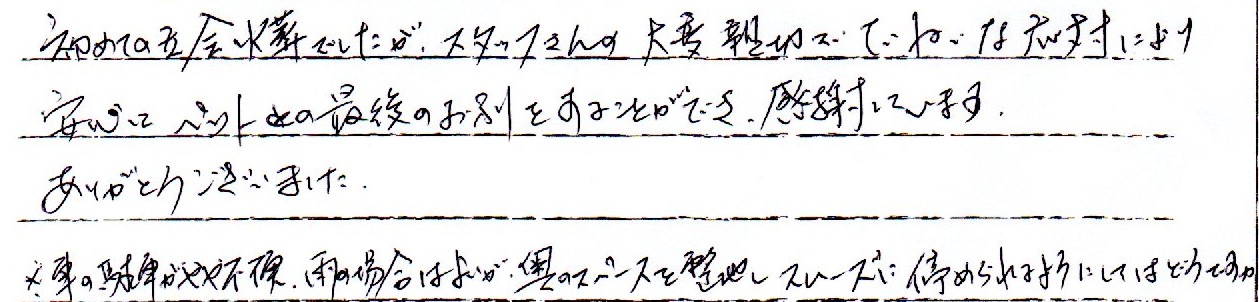 初めての立会火葬でしたが、スタッフさんの大変親切でていねいな応対により
安心してペットとの最後のお別れをすることができ、感謝しています。
ありがとうございました。
※車の駐車がやや不便、雨の場合はよいが、奥のスペースを整地しスムーズに停められるようにしてはどうですか